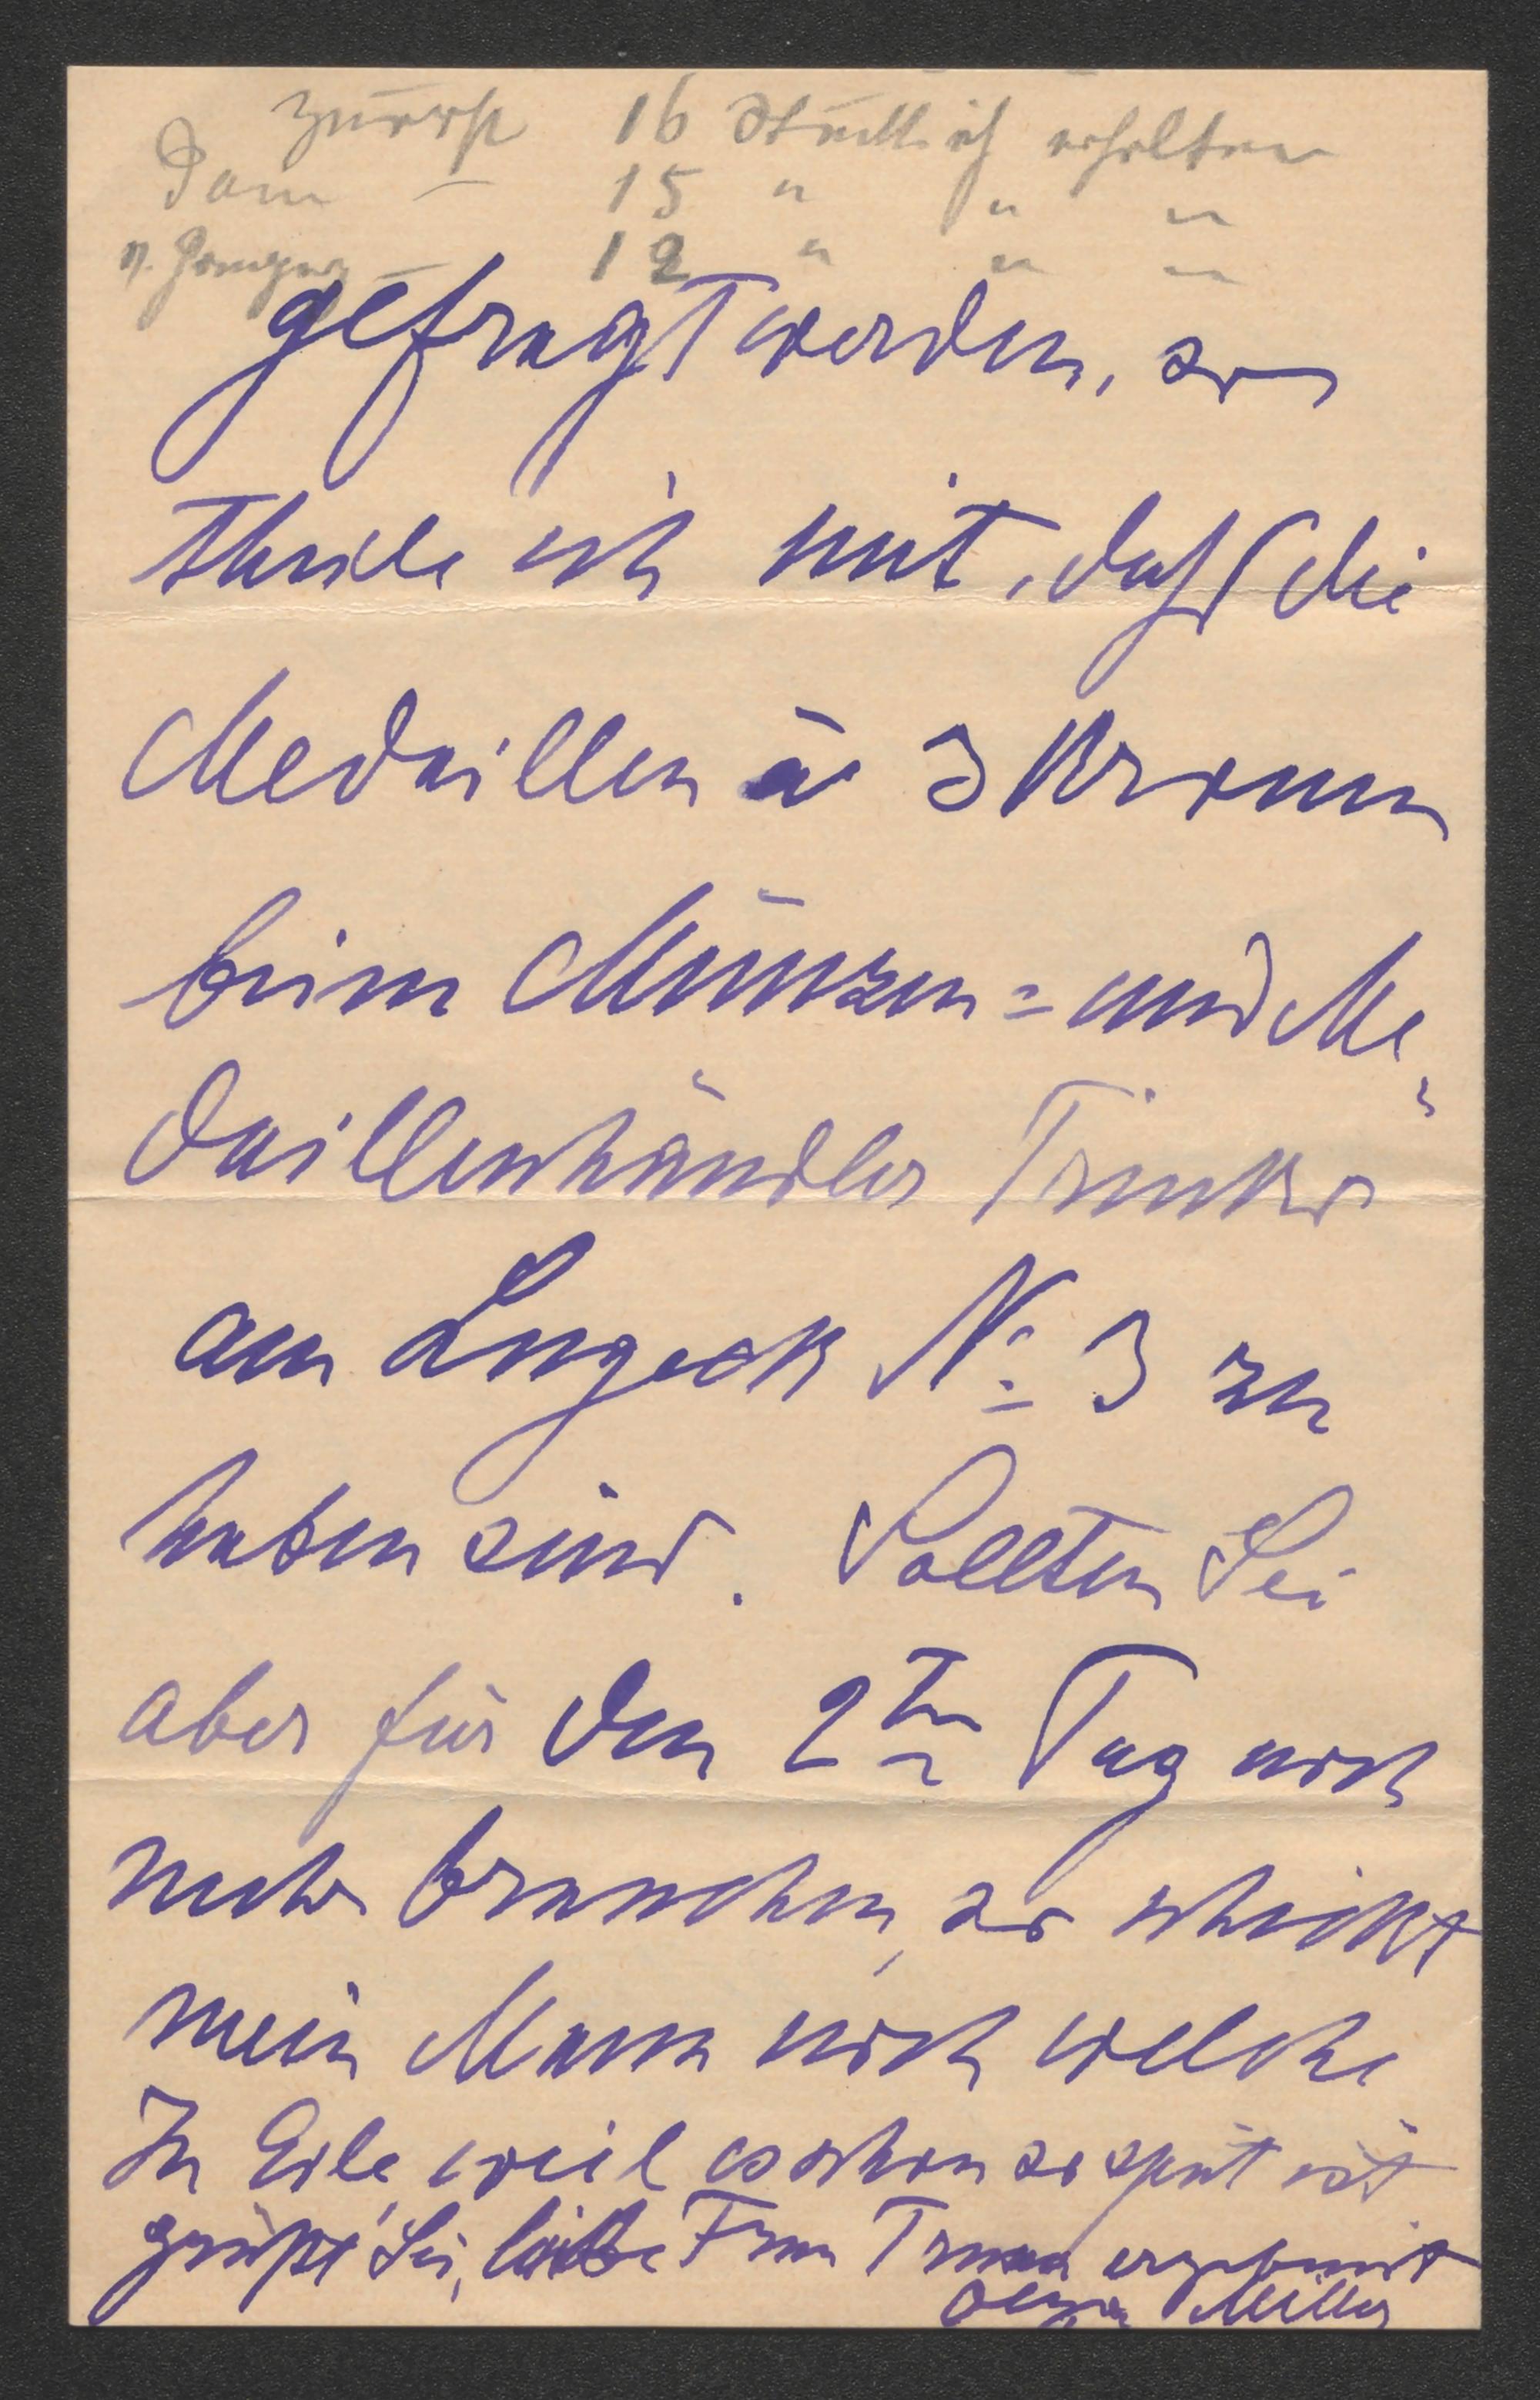 zuerst 16 Stück ich erhalten
Dann — 15 " " "
n. — 12 " " "
gefragt werden, so
theile ich mit, daß die
Medaillen à 3 Kronen
beim Münzen= und Me
daillenhändler Trinks
am Lugeck No 3 zu
haben sind. Sollten Sie
aber für den 2ten Tag noch
mehr brauchen, so schickt
mein Mann noch welche
In Eile, weil es schon so spät ist
grüßt Sie, liebe Frau ergebenst
Olga Miller